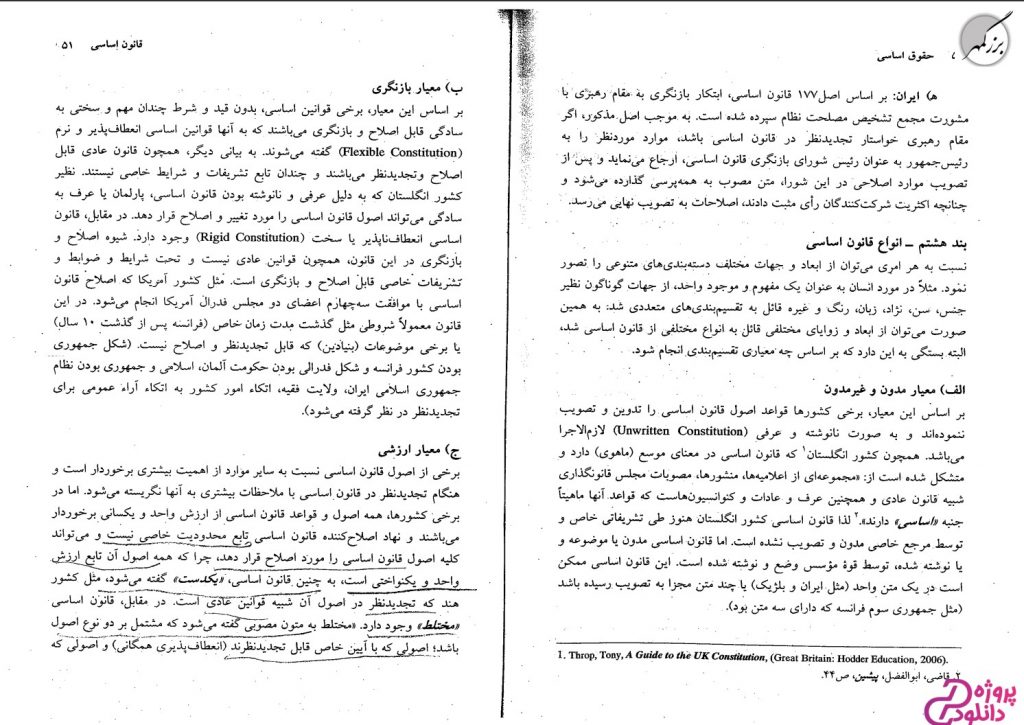 بزرگمهر
حقوق اساسی
ه) ایران: بر اساس اصل۱۷۷ قانون اساسی، ابتکار بازنگری به مقام رهبری با
مشورت مجمع تشخیص مصلحت نظام سپرده شده است. به موجب اصل مذکور، اگر
مقام رهبری خواستار تجدیدنظر در قانون اساسی باشد، موارد موردنظر را به
رئیس‌جمهور به عنوان رئیس شورای بازنگری قانون اساسی، ارجاع می‌نماید و پس از
تصویب موارد اصلاحی در این شورا، متن مصوب به همه‌پرسی گذارده می‌شود و
چنانچه اکثریت شرکت‌کنندگان رأی مثبت دادند، اصلاحات به تصویب نهایی می‌رسد.
بند هشتم ــ انواع قانون اساسی
نسبت به هر امری می‌توان از ابعاد و جهات مختلف دسته‌بندی‌های متنوعی را تصور
نمود. مثلاً در مورد انسان به عنوان یک مفهوم و موجود واحد، از جهات گوناگون نظیر
جنس، سن، نژاد، زبان، رنگ و غیره قائل به تقسیم‌بندی‌های متعددی شد: به همین
صورت می‌توان از ابعاد و زوایای مختلفی قائل به انواع مختلفی از قانون اساسی شد،
البته بستگی به این دارد که بر اساس چه معیاری تقسیم‌بندی انجام شود.
الف) معیار مدون و غیرمدون
بر اساس این معیار، برخی کشورها قواعد اصول قانون اساسی را تدوین و تصویب
ننموده‌اند و به صورت نانوشته و عرفی (Unwritten Constitution) لازم‌الاجرا
می‌باشد. همچون کشور انگلستان۱ که قانون اساسی در معنای موسع (ماهوی) دارد و
متشکل شده است از: «مجموعه‌ای از اعلامیه‌ها، منشورها، مصوبات مجلس قانونگذاری
شبیه قانون عادی و همچنین عرف و عادات و کنوانسیون‌هاست که قواعد آنها ماهیتاً
جنبه «اساسی» دارند».۲ لذا قانون اساسی کشور انگلستان هنوز طی تشریفاتی خاص و
توسط مرجع خاصی مدون و تصویب نشده است. اما قانون اساسی مدون یا موضوعه و
یا نوشته شده، توسط قوۀ مؤسس وضع و نوشته شده است. این قانون اساسی ممکن
است در یک متن واحد (مثل ایران و بلژیک) یا چند متن مجزا به تصویب رسیده باشد
(مثل جمهوری سوم فرانسه که دارای سه متن بود).
1. Throp, Tony, A Guide to the UK Constitution, (Great Britain: Hodder Education, 2006).
۲. قاضی، ابوالفضل، پیشین، ص۴۴.
قانون اساسی ۵۱
ب) معیار بازنگری
بر اساس این معیار، برخی قوانین اساسی، بدون قید و شرط چندان مهم و سختی به
سادگی قابل اصلاح و بازنگری می‌باشند که به آنها قوانین اساسی انعطاف‌پذیر و نرم
(Flexible Constitution) گفته می‌شوند. به بیانی دیگر، همچون قانون عادی قابل
اصلاح وتجدیدنظر می‌باشند و چندان تابع تشریفات و شرایط خاصی نیستند. نظیر
کشور انگلستان که به دلیل عرفی و نانوشته بودن قانون اساسی، پارلمان یا عرف به
سادگی می‌تواند اصول قانون اساسی را مورد تغییر و اصلاح قرار دهد. در مقابل، قانون
اساسی انعطاف‌ناپذیر یا سخت (Rigid Constitution) وجود دارد. شیوه اصلاح و
بازنگری در این قانون، همچون قوانین عادی نیست و تحت شرایط و ضوابط و
تشریفات خاصی قابل اصلاح و بازنگری است. مثل کشور آمریکا که اصلاح قانون
اساسی با موافقت سه‌چهارم اعضای دو مجلس فدرال آمریکا انجام می‌شود. در این
قانون معمولاً شروطی مثل گذشت مدت زمان خاص (فرانسه پس از گذشت ۱۰ سال)
یا برخی موضوعات (بنیادین) که قابل تجدیدنظر و اصلاح نیست. (شکل جمهوری
بودن کشور فرانسه و شکل فدرالی بودن حکومت آلمان، اسلامی و جمهوری بودن نظام
جمهوری اسلامی ایران، ولایت فقیه، اتکاء امور کشور به اتکاء آراء عمومی برای
تجدیدنظر در نظر گرفته می‌شود).
ج) معیار ارزشی
برخی از اصول قانون اساسی نسبت به سایر موارد از اهمیت بیشتری برخوردار است و
هنگام تجدیدنظر در قانون اساسی با ملاحظات بیشتری به آنها نگریسته می‌شود. اما در
برخی کشورها، همه اصول و قواعد قانون اساسی از ارزش واحد و یکسانی برخوردار
می‌باشند و نهاد اصلاح‌کننده قانون اساسی تابع محدودیت خاصی نیست و می‌تواند
کلیه اصول قانون اساسی را مورد اصلاح قرار دهد، چرا که همه اصول آن تابع ارزش
واحد و یکنواختی است، به چنین قانون اساسی، «یکدست» گفته می‌شود، مثل کشور
هند که تجدیدنظر در اصول آن شبیه قوانین عادی است. در مقابل، قانون اساسی
«مختلط» وجود دارد. «مختلط به متون مصوبی گفته می‌شود که مشتمل بر دو نوع اصول
باشد؛ اصولی که با آیین خاص قابل تجدیدنظرند (انعطاف‌پذیری همگانی) و اصولی که
پروژه
دانلود